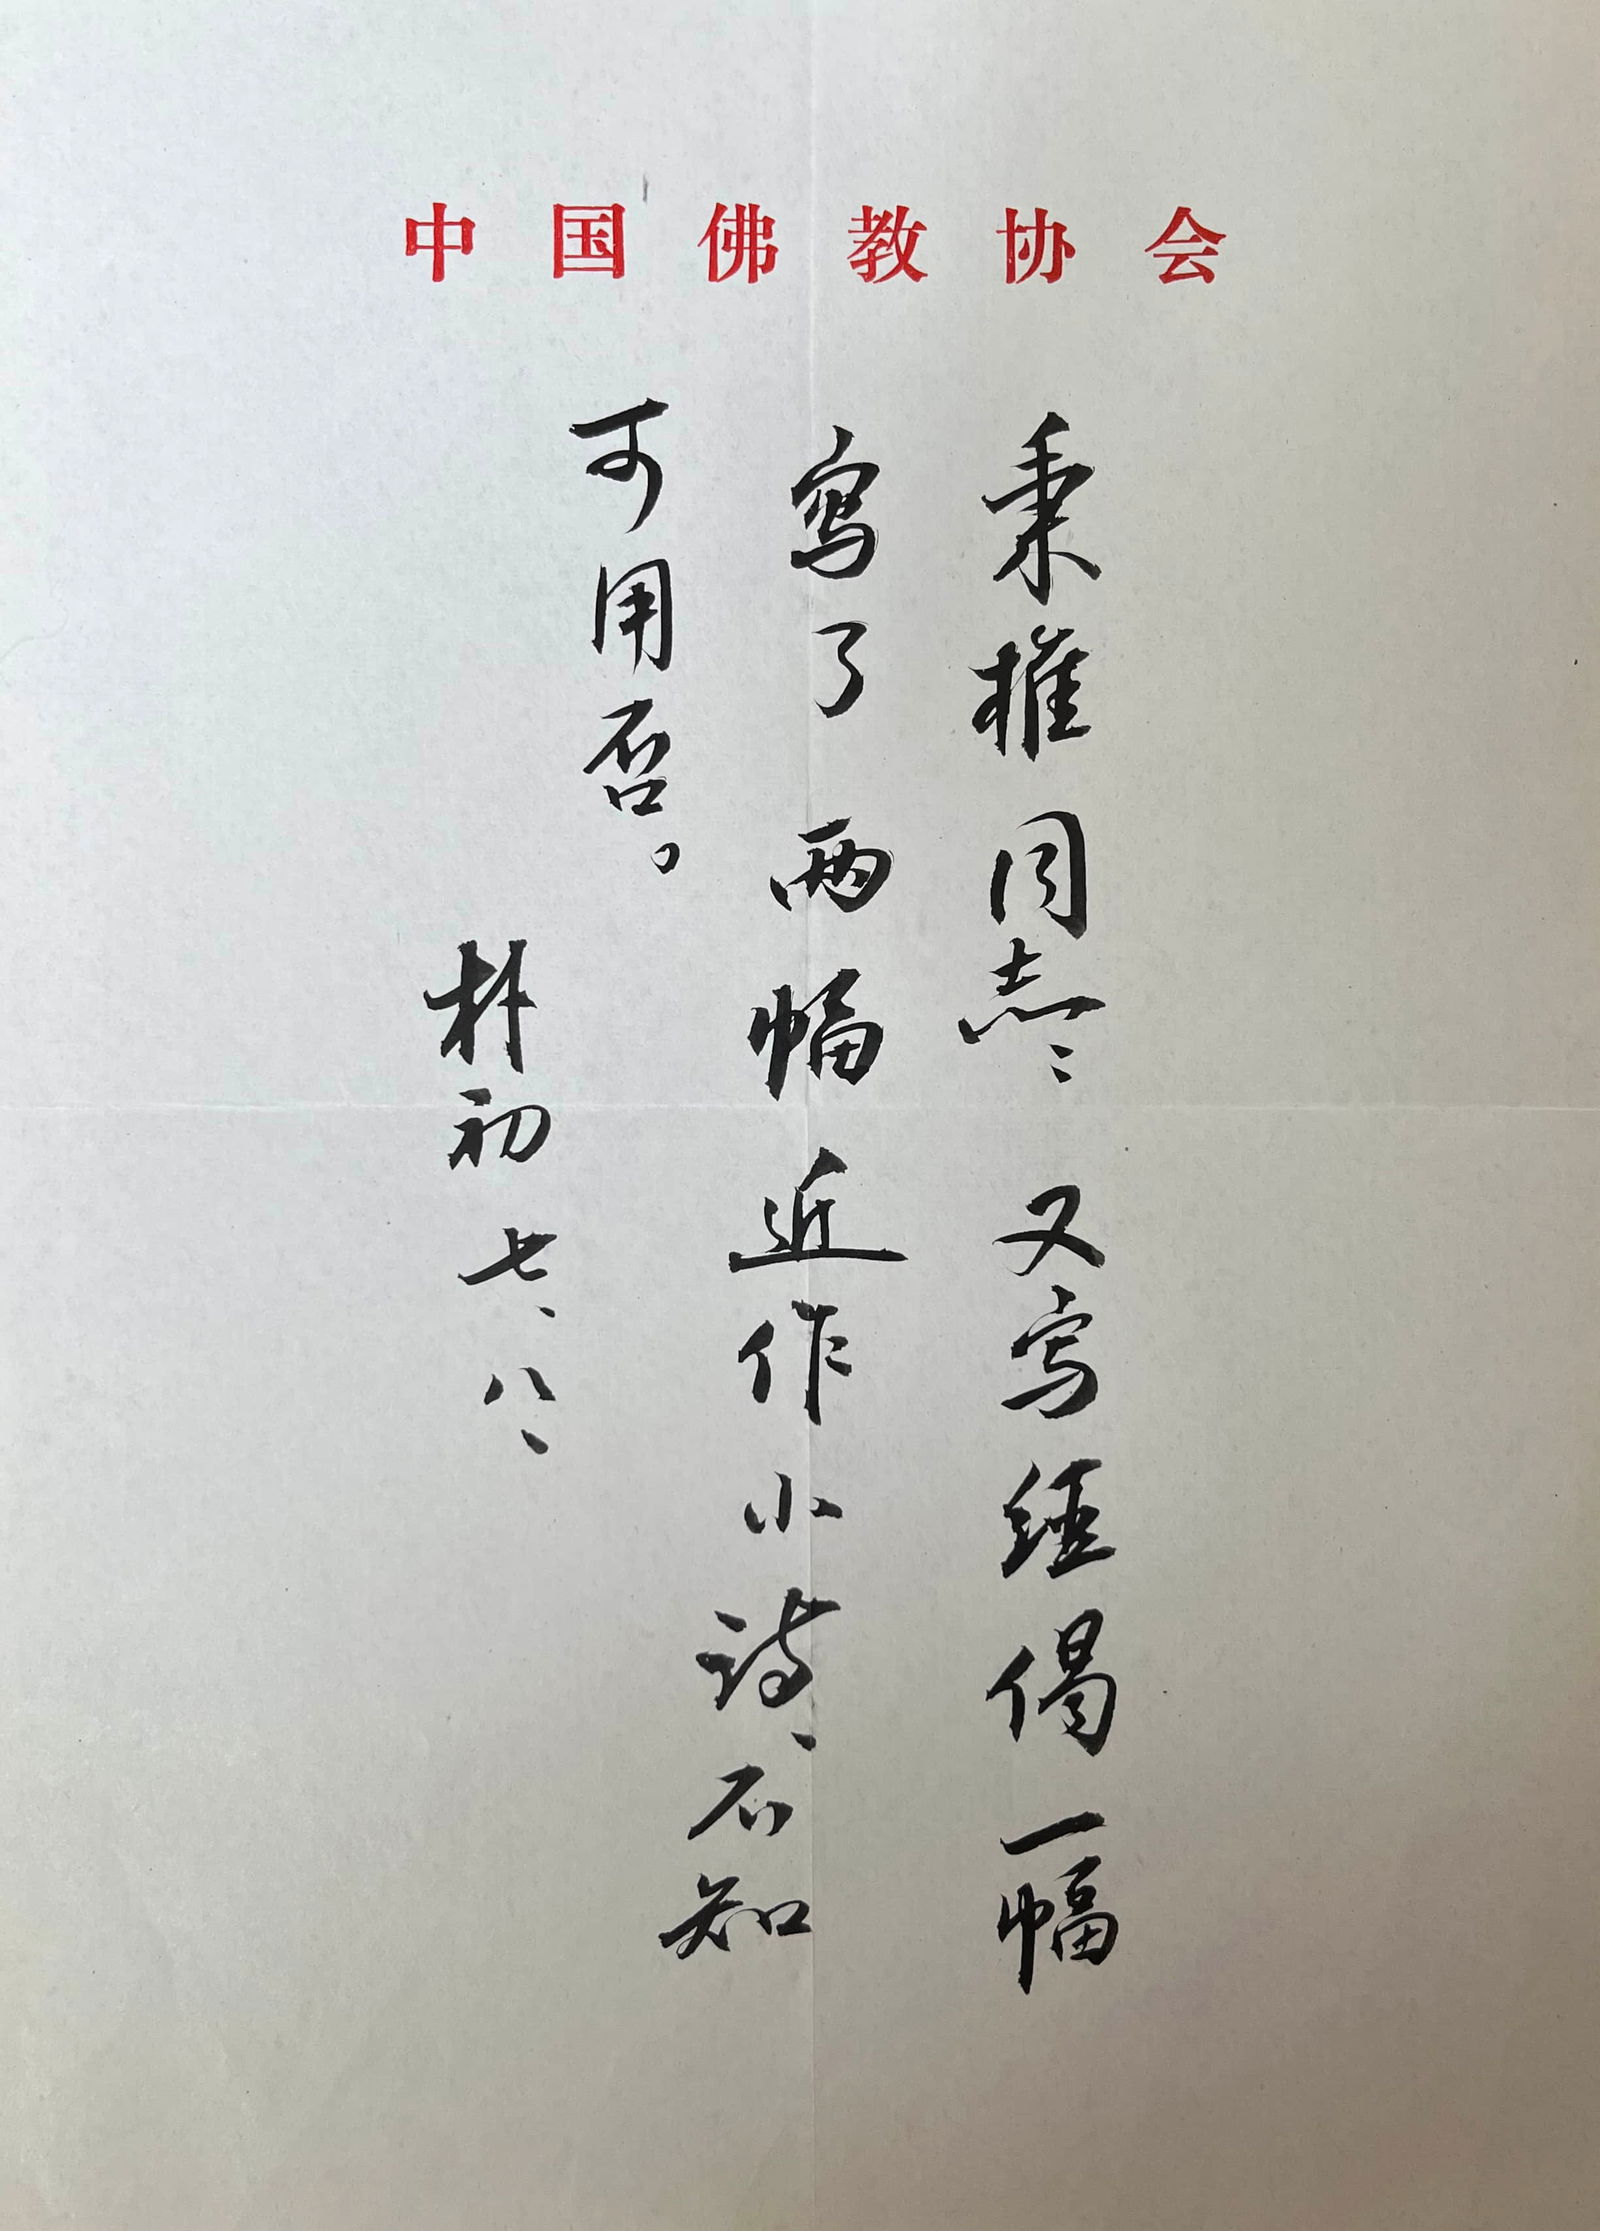 中国佛教协会
秉權同志：又写经偈一幅
寫了两幅近作小诗、不知
可用否。
朴初 七、八、